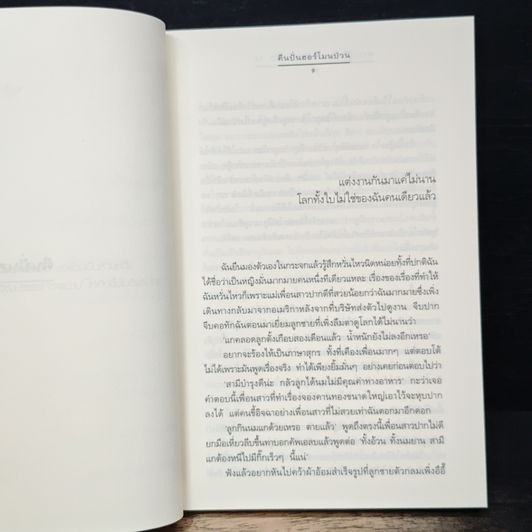 คืนปั่นฮอร์โมนป่วน
9
แต่งงานกันมาแค่ไม่นาน
โลกทั้งใบไม่ใช่ของฉันคนเดียวแล้ว
ฉันยืนมองตัวเองในกระจกแล้วรู้สึกหวั่นไหวนิดหน่อยทั้งที่ปกติฉัน
ได้ชื่อว่าเป็นหญิงมั่นมากมายคนหนึ่งทีเดียวแหละ เรื่องของเรื่องที่ทำให้
ฉันหวั่นไหวก็เพราะแม่เพื่อนสาวปากดีที่สวยน้อยกว่าฉันมากมายซึ่งเพิ่ง
เดินทางกลับมาจากอเมริกาหลังจากที่บริษัทส่งตัวไปดูงาน จีบปาก
จีบคอทักฉันตอนมาเยี่ยมลูกชายที่เพิ่งลืมตาดูโลกได้ไม่นานว่า
'แกคลอดลูกตั้งเกือบสองเดือนแล้ว น้ำหนักยังไม่ลงอีกเหรอ'
อยากจะร้องไห้เป็นภาษาสุกร ทั้งที่เคืองเพื่อนมากๆ แต่ตอบโต้
ไม่ได้เพราะมันพูดเรื่องจริง ทำได้เพียงยิ้มมั่นๆ อย่างเคยก่อนตอบไปว่า
'สามีบำรุงดีน่ะ กลัวลูกได้นมไม่มีคุณค่าทางอาหาร' กะว่าเจอ
คำตอบนี้เพื่อนสาวที่ทำเรื่องจองคานทองขนาดใหญ่เอาไว้จะหุบปาก
ลงได้ แต่คนขี้อิจฉาอย่างเพื่อนสาวที่ไม่สวยเท่าฉันตอกมาอีกดอก
'ลูกกินนมแกด้วยเหรอ ตายแล้ว' พูดถึงตรงนี้เพื่อนสาวปากไม่ดี
ยกมือเหี่ยวลีบขึ้นทาบอกคัพเอลบแล้วพูดต่อ 'ทั้งอ้วน ทั้งนมยาน สามี
แกต้องหนีไปมีกิ๊กเร็วๆ นี้แน่'
ฟังแล้วอยากหันไปคว้าผ้าอ้อมสำเร็จรูปที่ลูกชายตัวกลมเพิ่งอึอี้